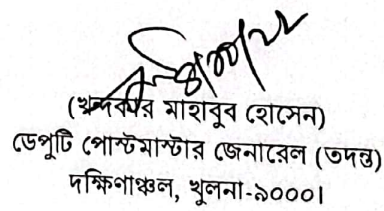 (খন্দকার মাহাবুব হোসেন)
ডেপুটি পোস্টমাস্টার জেনারেল (তদন্ত)
দক্ষিণাঞ্চল, খুলনা-৯০০০।